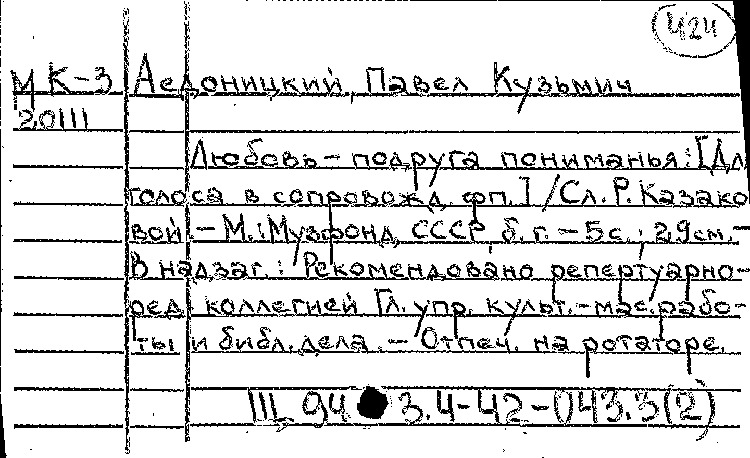 424
МК-3 Аедоницкий, Павел Кузьмич
20111
Любовь - подруга пониманья: [Дл
голоса в сопровожд. фп.] / Сл. Р. Казако
вой. - М.: Музфонд СССР, б. г. - 5 с.; 29 см. -
В надзаг.: Рекомендовано репертуарно-
ред. коллегией Гл. упр. культ.-мас. рабо-
ты и библ. дела. - Отпеч. на ротаторе.
Щ 94 3.4-42-043.3(2)